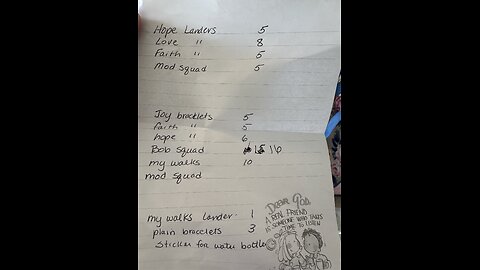 Hope Landers 5
Love " 8
Faith " 5
mod squad 5
Joy bracelets 5
faith " 5
hope " 6
Bob squad 15 16
my walks 10
mod squad
my walks Lander. 1
plain bracelets 3
Sticker for water bottles
DEAR GOD,
A REAL FRIEND
IS SOMEONE WHO TAKES
TIME TO LISTEN